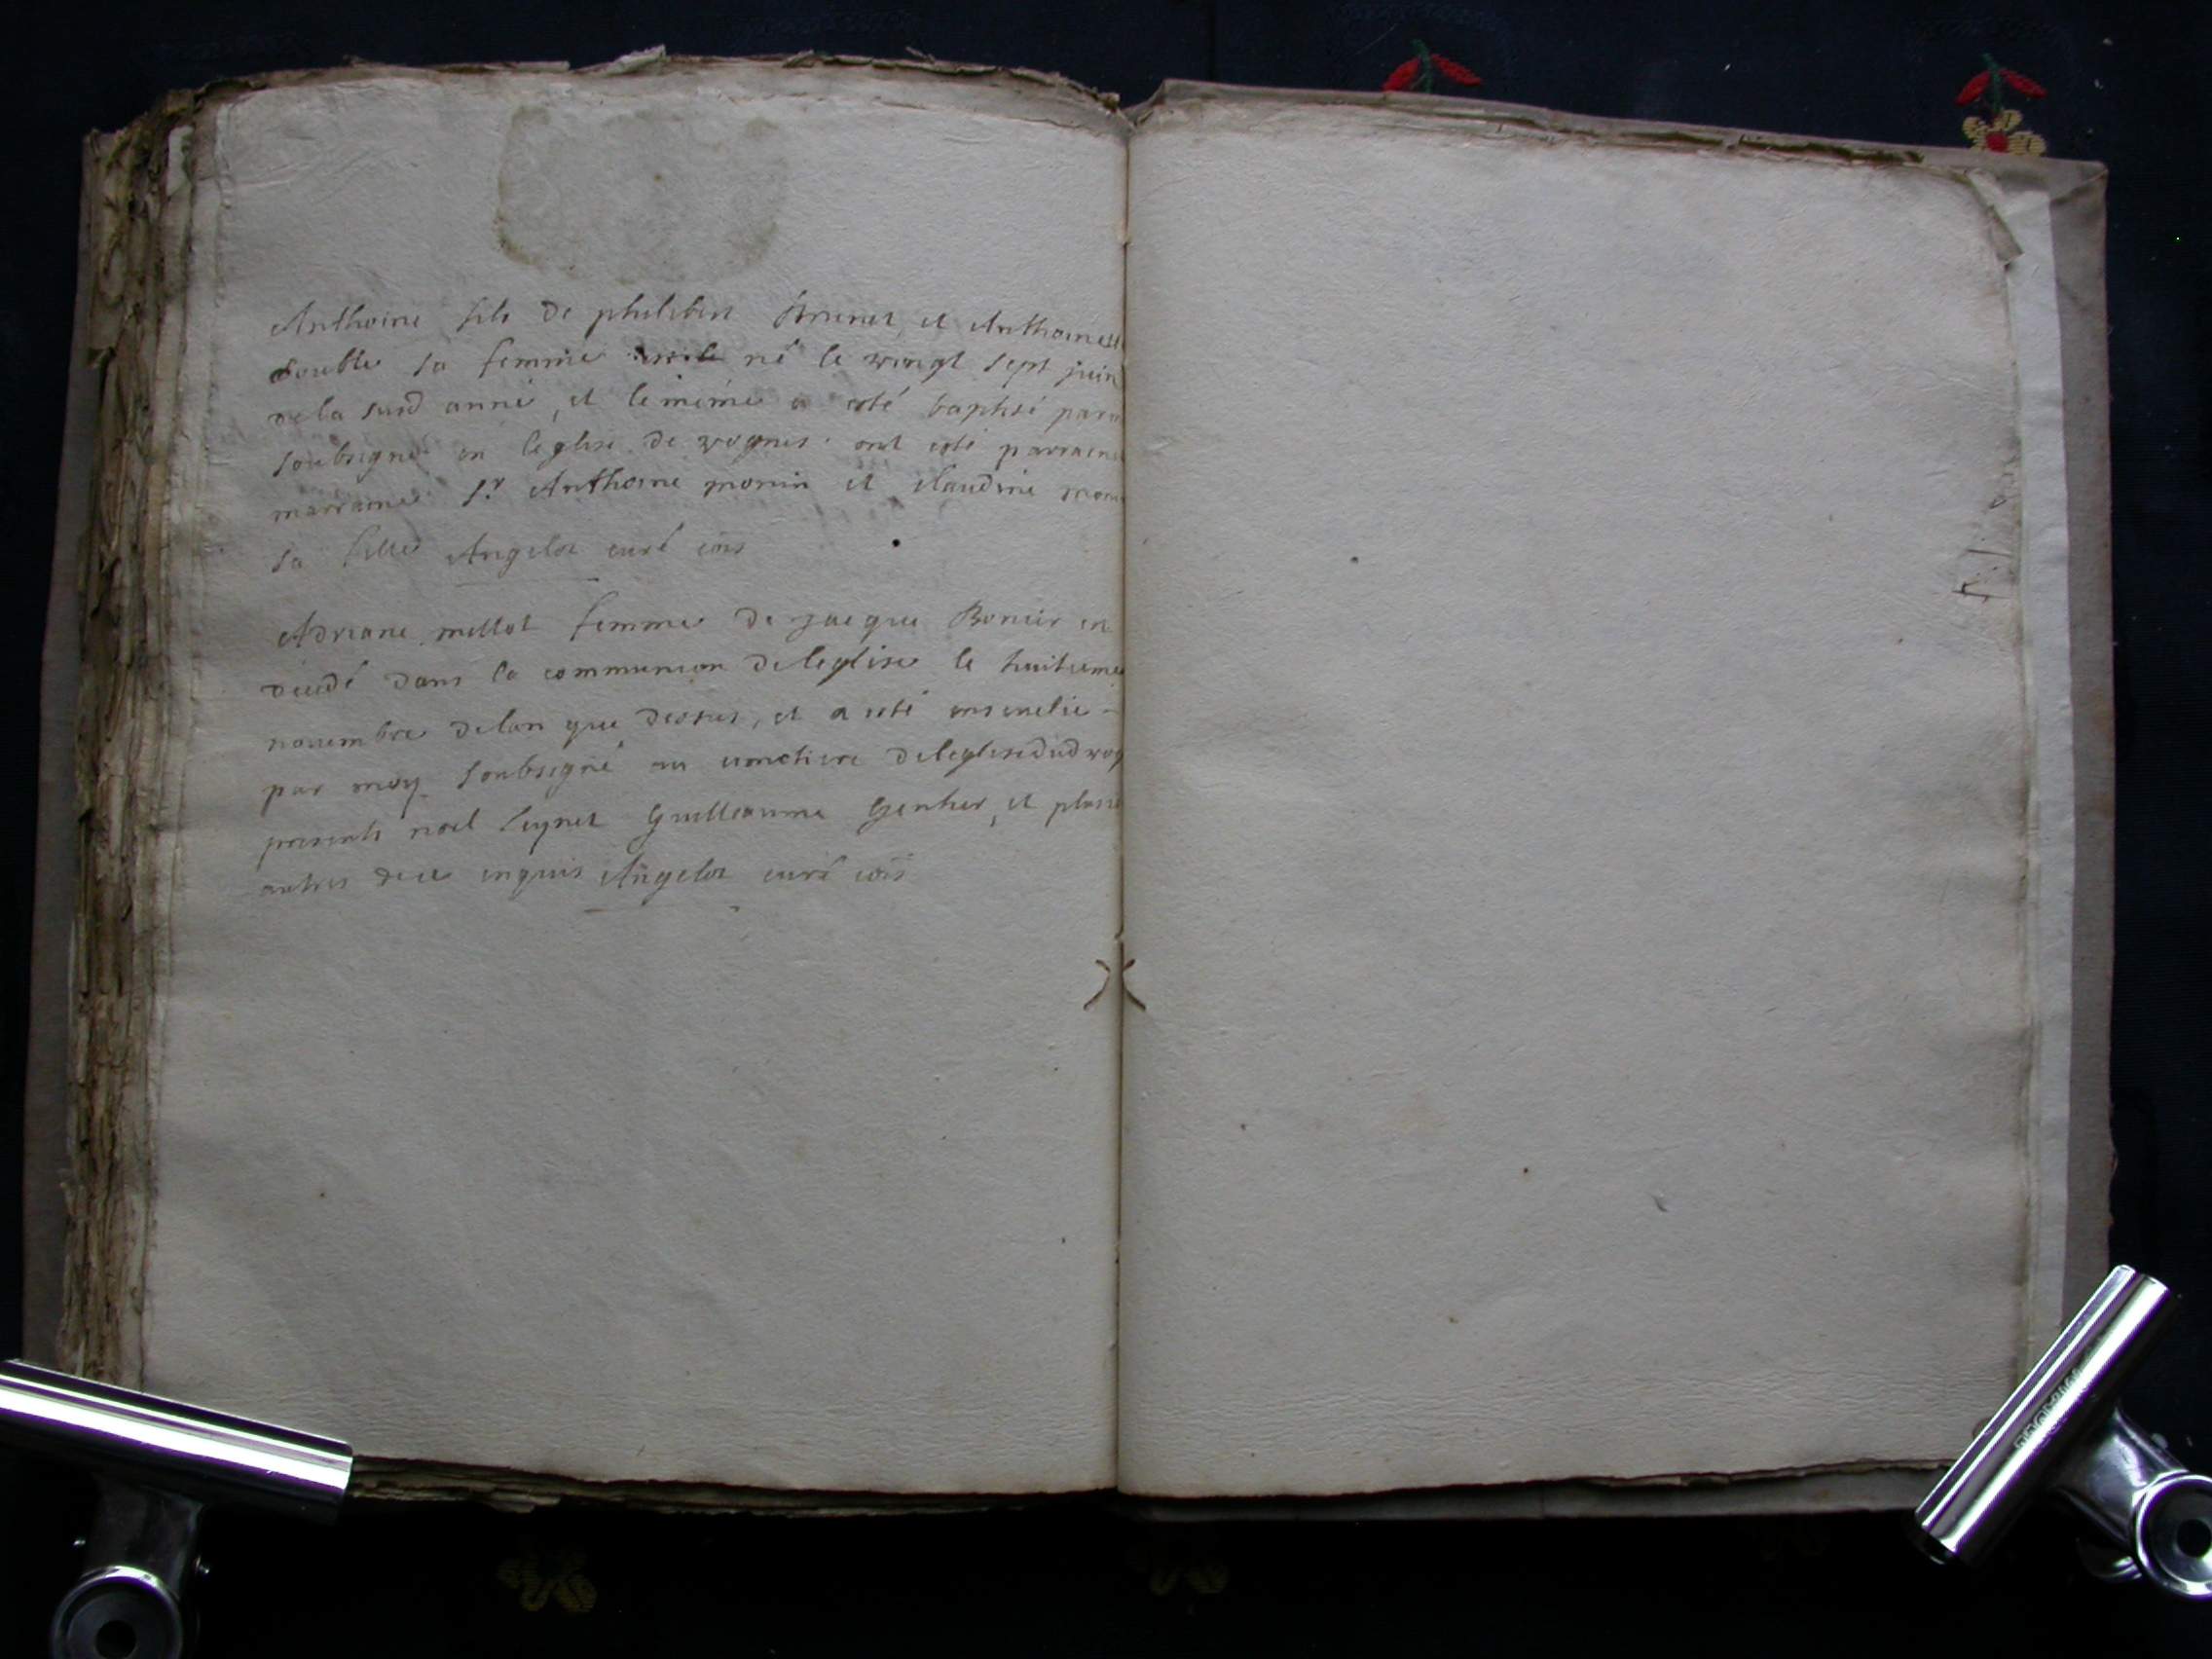 Anthoine fils de philibert Brunet et Anthoinett
double sa femme né le vingt sept juin
de la susd anné, et le même a esté baptisé par m
soubsigné en léglise de vognes ont esté parrain
marraine Sr Anthoine monin et claudine moni
sa fille Angelot curé
Adriane millot femme de jacque Bonier
décédé dans la communion de leglise le huitieme
novembre de lan que dessus, et a esté ensevelie -
par moy soubsigné au cimetiere de leglise dud vog
presents noel Guilleaume et
autres de ce enquis Angelot curé